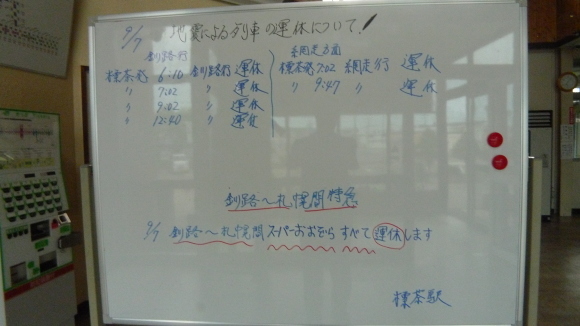 9/7 地震による列車の運休について!
釧路行
標茶発 6:10 釧路行 運休
〃 7:02 〃 運休
〃 9:02 〃 運休
〃 12:40 〃 運休
網走方面
標茶発 7:02 網走行 運休
〃 9:47 〃 運休
釧路～札幌間特急
9/7 釧路～札幌間 スーパーおおぞら すべて運休します
標茶駅